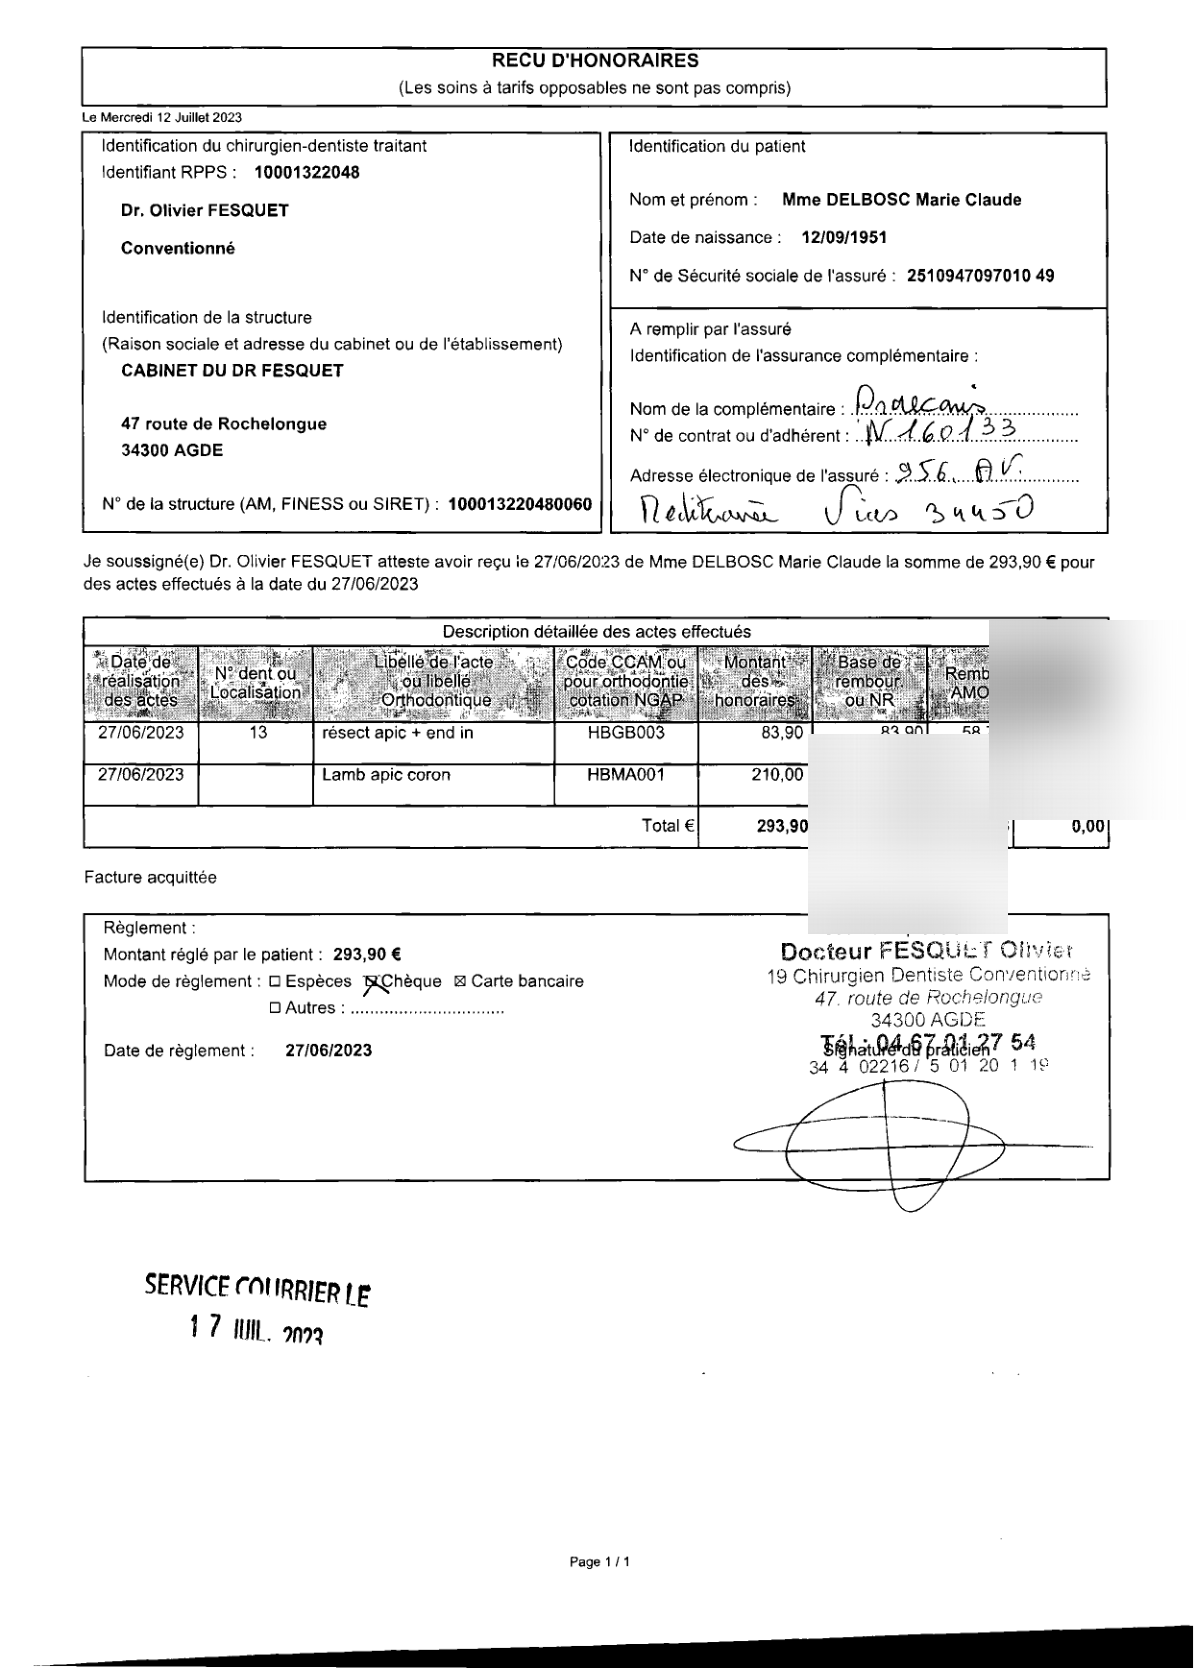 RECU D'HONORAIRES
(Les soins à tarifs opposables ne sont pas compris)
Le Mercredi 12 Juillet 2023
Identification du chirurgien-dentiste traitant
Identifiant RPPS : 10001322048
Dr. Olivier FESQUET
Conventionné
Identification de la structure
(Raison sociale et adresse du cabinet ou de l'établissement)
CABINET DU DR FESQUET
47 route de Rochelongue
34300 AGDE
N° de la structure (AM, FINESS ou SIRET) : 100013220480060
Identification du patient
Nom et prénom : Mme DELBOSC Marie Claude
Date de naissance : 12/09/1951
N° de Sécurité sociale de l'assuré : 2510947097010 49
A remplir par l'assuré
Identification de l'assurance complémentaire :
Nom de la complémentaire :
N° de contrat ou d'adhérent : N 160133
Adresse électronique de l'assuré : 956 AV.
Mediterranée Vias 34450
Je soussigné(e) Dr. Olivier FESQUET atteste avoir reçu le 27/06/2023 de Mme DELBOSC Marie Claude la somme de 293,90 € pour
des actes effectués à la date du 27/06/2023
Description détaillée des actes effectués
Date de réalisation des actes
N° dent ou Localisation
Libellé de l'acte ou libellé Orthodontique
Code CCAM ou pour orthodontie cotation NGAP
Montant des honoraires
Base de rembour. ou NR
Remb AMO
27/06/2023 13 résect apic + end in HBGB003 83,90 83,90 58,
27/06/2023 Lamb apic coron HBMA001 210,00
Total € 293,90 0,00
Facture acquittée
Règlement :
Montant réglé par le patient : 293,90 €
Mode de règlement : ☐ Espèces ☒ Chèque ☒ Carte bancaire
☐ Autres : ................................
Date de règlement : 27/06/2023
Docteur FESQUET Olivier
19 Chirurgien Dentiste Conventionné
47, route de Rochelongue
34300 AGDE
Tél : 04 67 01 27 54
Signature du praticien
34 4 02216 / 5 01 20 1 19
SERVICE COURRIER LE
17 JUIL. 2023
Page 1 / 1